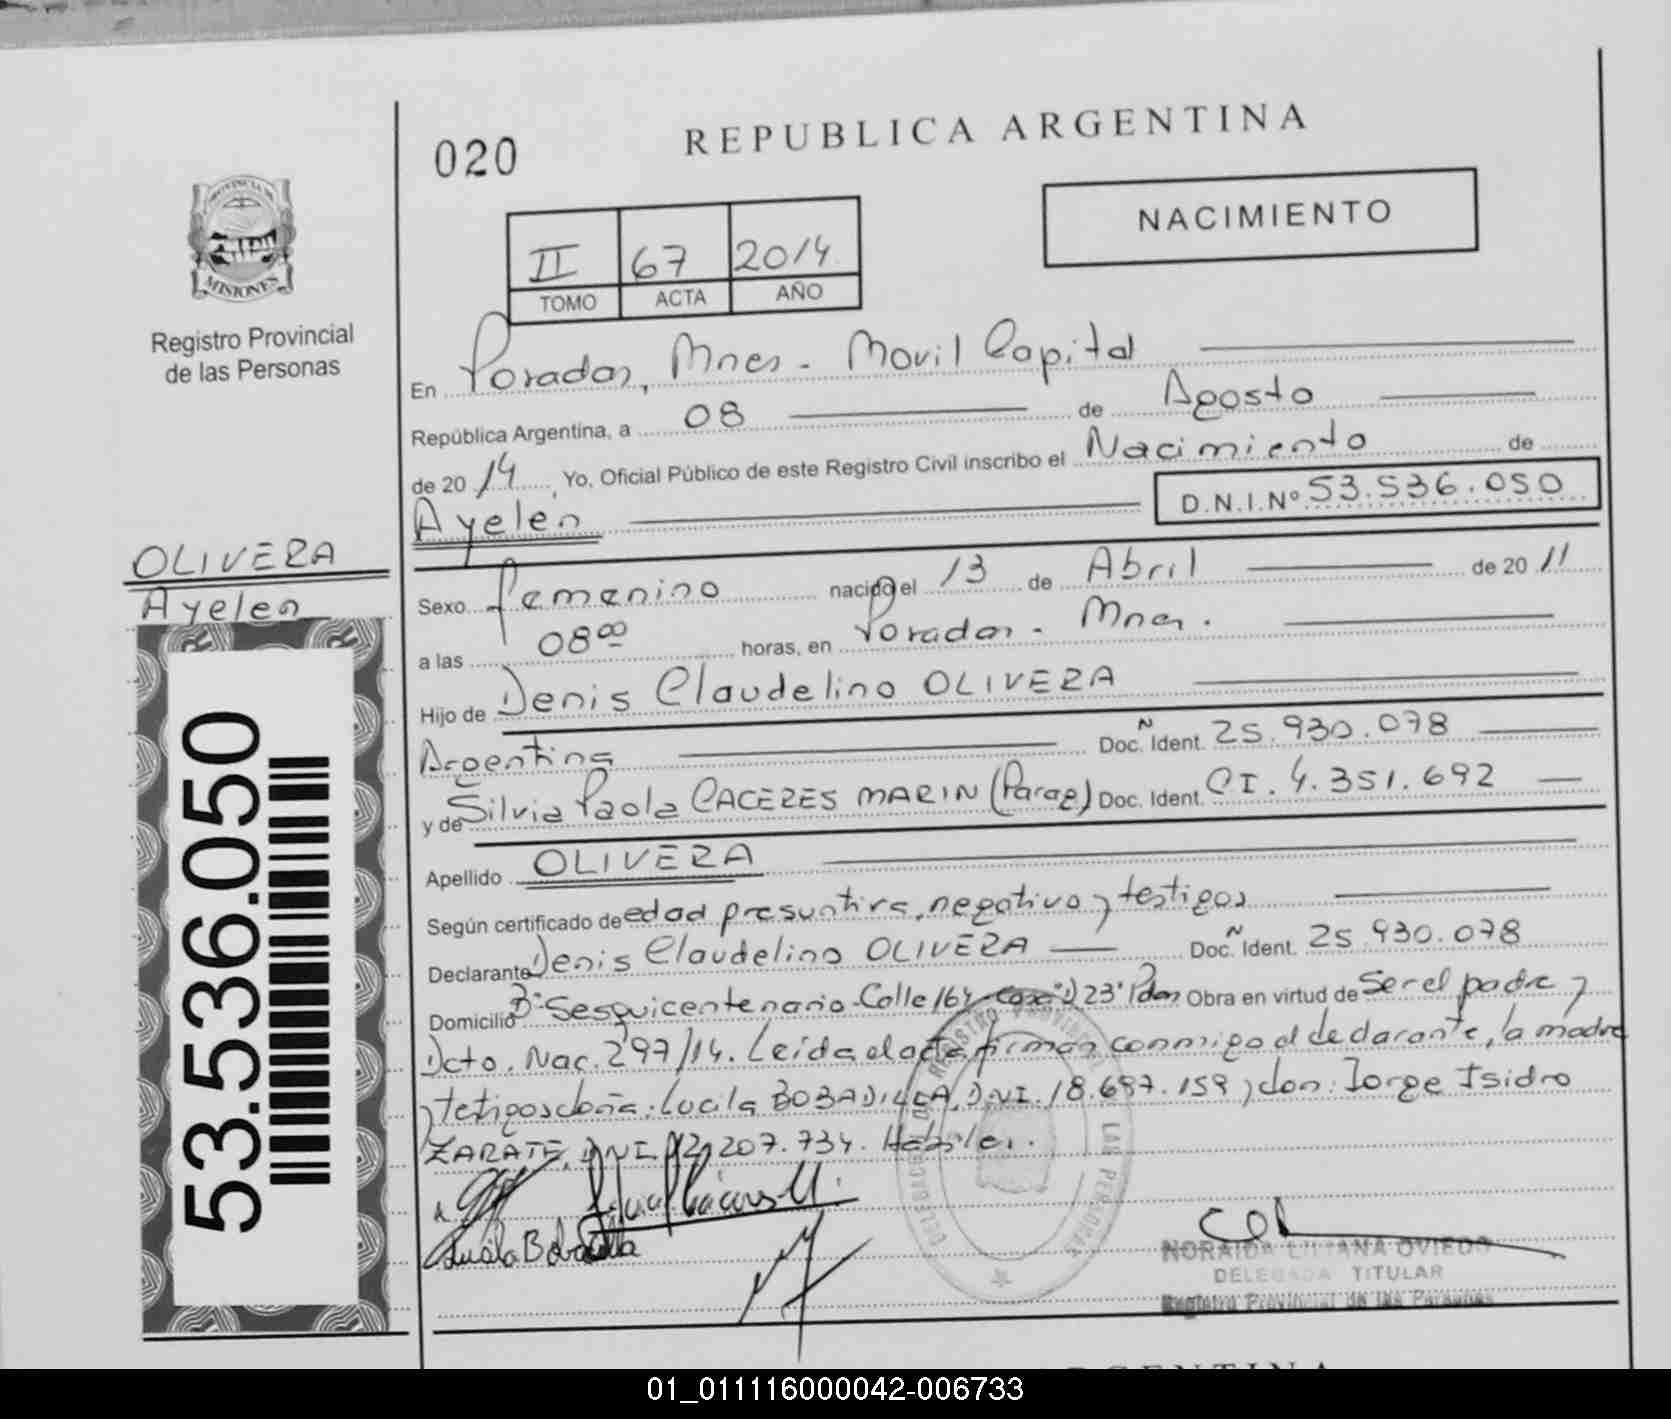 020
REPUBLICA ARGENTINA
PROVINCIA DE
MISIONES
Registro Provincial
de las Personas
NACIMIENTO
II 67 2014
TOMO ACTA AÑO
En Posadas, Mnes - Movil Capital
República Argentina, a 08 de Agosto
de 2014, Yo, Oficial Público de este Registro Civil inscribo el Nacimiento de
Ayelen D.N.I.Nº 53.536.050
OLIVERA
Ayelen
Sexo femenino nacido el 13 de Abril de 2011
a las 08 00 horas, en Posadas - Mnes.
Hijo de Denis Claudelino OLIVERA
Argentina Doc. Ident. 25.930.078
y de Silvia Paola CACERES MARIN (Parag) Doc. Ident. CI. 4.351.692
Apellido OLIVERA
Según certificado de edad presuntiva, negativo y testigos
Declarante Denis Claudelino OLIVERA Doc. Ident. 25.930.078
Domicilio Bº Sesquicentenario Calle 164 23 Pdas Obra en virtud de Ser el padre y
Dcto. Nac. 297/14. Leida el acta firman conmigo el declarante, la madre
y testigos doña: Lucila BOBADILLA, DNI. 18.697.159 y don: Jorge Isidro
ZARATE, DNI 12.207.734. Habiles.
Lucila Bobadilla
DELEGACION REGISTRO PROVINCIAL DE LAS PERSONAS
NORAIDA LILIANA OVIEDO
DELEGADA TITULAR
Registro Provincial de las Personas
53.536.050
01_011116000042-006733